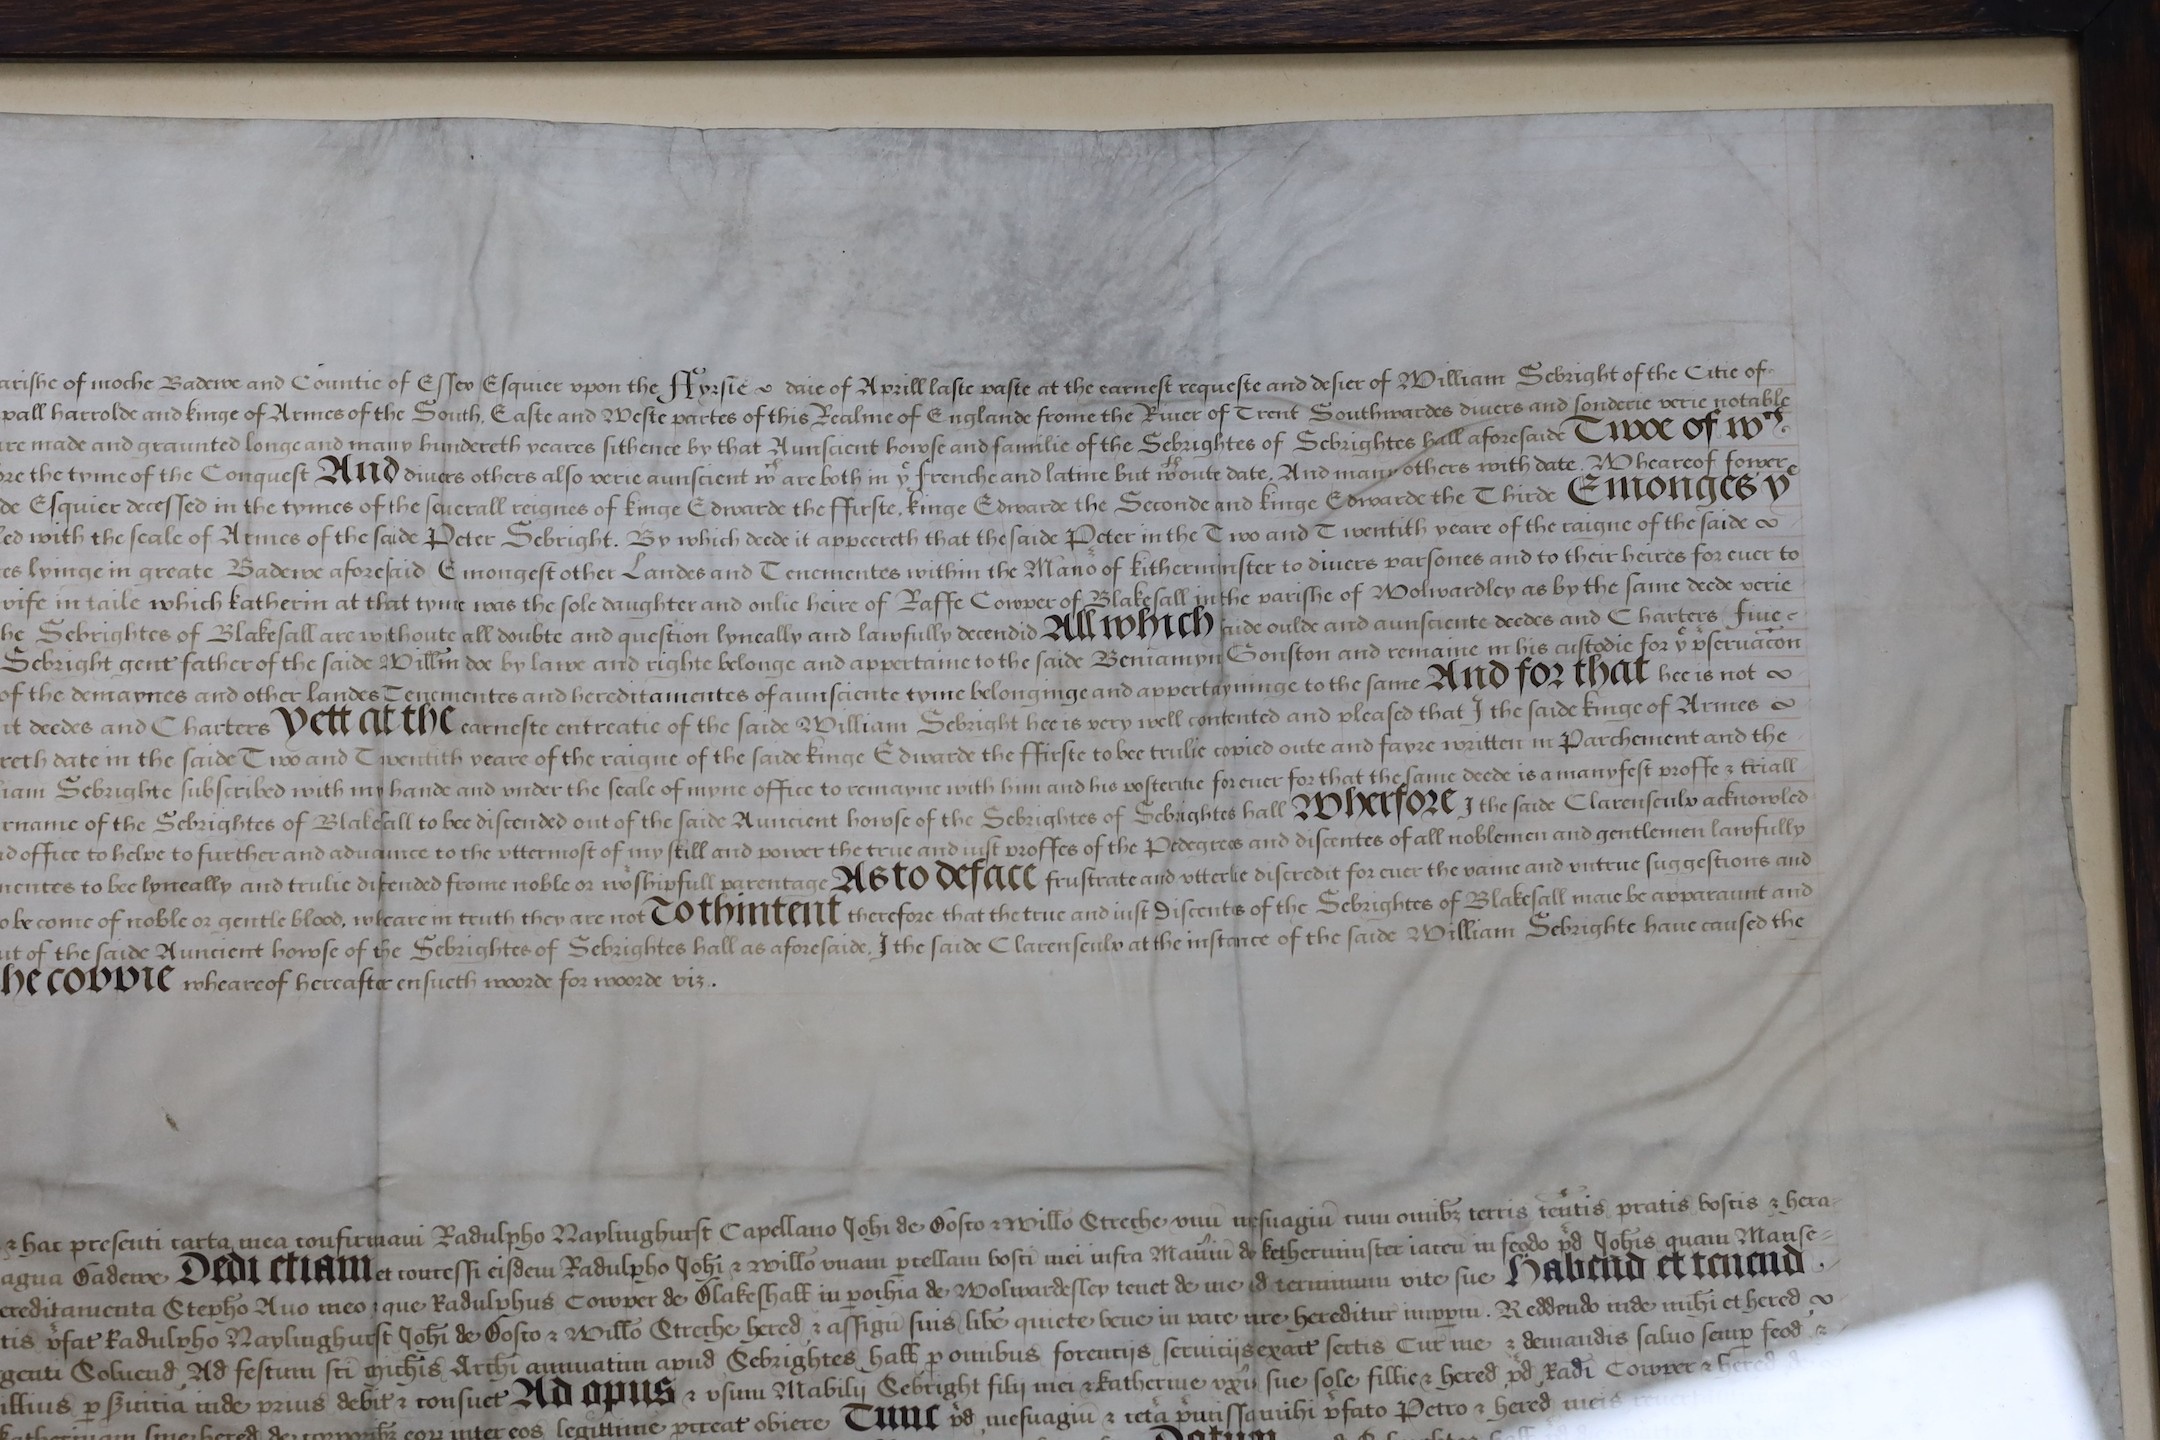 arishe of moche Badewe and Countie of Essex Esquier vpon the ffyrste daie of Aprill laste paste at the earnest requeste and desier of William Sebright of the Citie of
pall harrolde and kinge of Armes of the South, Easte and Weste partes of this Realme of Englande frome the River of Trent Southwardes divers and sonderie verie notable
re made and graunted longe and many hundereth yeares sithence by that Aunscient howse and familie of the Sebrightes of Sebrightes hall aforesaide Twoe of wch
ore the tyme of the Conquest And divers others also verie aunscient wch are both in ye frenche and latine but wthoute date, And many others with date. Wheareof fower
de Esquier decessed in the tymes of the seuerall reignes of kinge Edwarde the ffirste, kinge Edwarde the Seconde and kinge Edwarde the Thirde Emonges ye
led with the seale of Armes of the saide Peter Sebright. By which deede it appeereth that the saide Peter in the Two and Twentith yeare of the raigne of the saide
es lyinge in greate Badewe aforesaid Emongest other Landes and Tenementes within the Manor of kitherminster to diuers parsones and to their heires for euer to
wife in taile which katherin at that tyme was the sole daughter and onlie heire of Raffe Cowper of Blakesall in the parishe of Wolwardley as by the same deede verie
he Sebrightes of Blakesall are withoute all doubte and question lyneally and lawfully decendid All which saide oulde and aunsciente deedes and Charters
Sebright gent father of the saide Willm doe by lawe and righte belonge and appertaine to the saide Beniamyn Gonston and remaine in his custodie for ye pseruacon
of the demaynes and other landes Tenementes and hereditamentes of aunsciente tyme belonginge and appertayninge to the same And for that hee is not
it deedes and Charters Yett at the earneste entreatie of the saide William Sebright hee is very well contented and pleased that I the saide kinge of Armes
reth date in the saide Two and Twentith yeare of the raigne of the saide kinge Edwarde the ffirste to bee trulie copied oute and fayre written in Parchement and the
iam Sebrighte subscribed with my hande and vnder the seale of myne office to remayne with him and his posteritie for euer for that the same deede is a manyfest proffe & triall
rname of the Sebrightes of Blakesall to bee discended out of the saide Auncient howse of the Sebrightes of Sebrightes hall Wherfore I the saide Clarenseulx acknowled
d office to helpe to further and aduaunce to the vttermost of my skill and power the true and iust proffes of the Pedegrees and discentes of all noblemen and gentlemen lawfully
mentes to bee lyneally and trulie discended frome noble or worshipfull parentage As to deface frustrate and vtterlie discredit for euer the vaine and vntrue suggestions and
o be come of noble or gentle blood, wheare in truth they are not To thintent therefore that the true and iust Discents of the Sebrightes of Blakesall maie be apparaunt and
ut of the saide Auncient howse of the Sebrightes of Sebrightes hall as aforesaide, I the saide Clarenseulx at the instance of the saide William Sebrighte haue caused the
he coppie wheareof hereafter ensueth woorde for woorde viz.
& hac presenti carta mea confirmaui Radulpho Naylinghurst Capellano Johi de Bosco & Willo Streche vnu mesuagiu cum omibz terris tentis pratis boscis & hera
agua Badewe Dedi etiam et concessi eisdem Radulpho Johi & Willo vnam pcellam bosci mei infra Maniu de ketherminster iacen in feodo pd Johis quam Manse
ereditamenta Stepho Auo meo que Radulphus Cowper de Blakeshall in pochia de Wolwardesley tenet de me ad terminum vite sue Habend et tenend
tis pfat Radulpho Naylinghurst Johi de Bosco & Willo Streche hered & assign suis libe quiete bene in pace iure hereditar imppm. Reddendo inde mihi et hered
genti Soluend Ad festum sci michis Archi annuatim apud Sebrightes hall p omibus forencijs seruicijs exact sectis Cur me & demandis saluo semp feod
illius p inde prius debit & consuet Ad opus & vsum Mabilij Sebright filij mei & katherine vxis sue sole fillie & hered pd Radi Cowper & hered
katherinam sine hered de corporibz eor inter eos legittime pcreat obiere Tunc pd mesuagiu & pfato Petro & hered meis
Datum